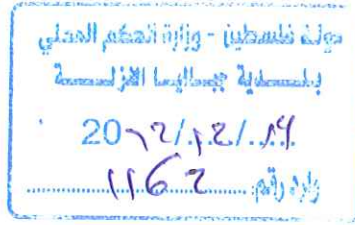 دولة فلسطين - وزارة الحكم المحلي
بلدية جباليا النزلة
20
وارد رقم 1162